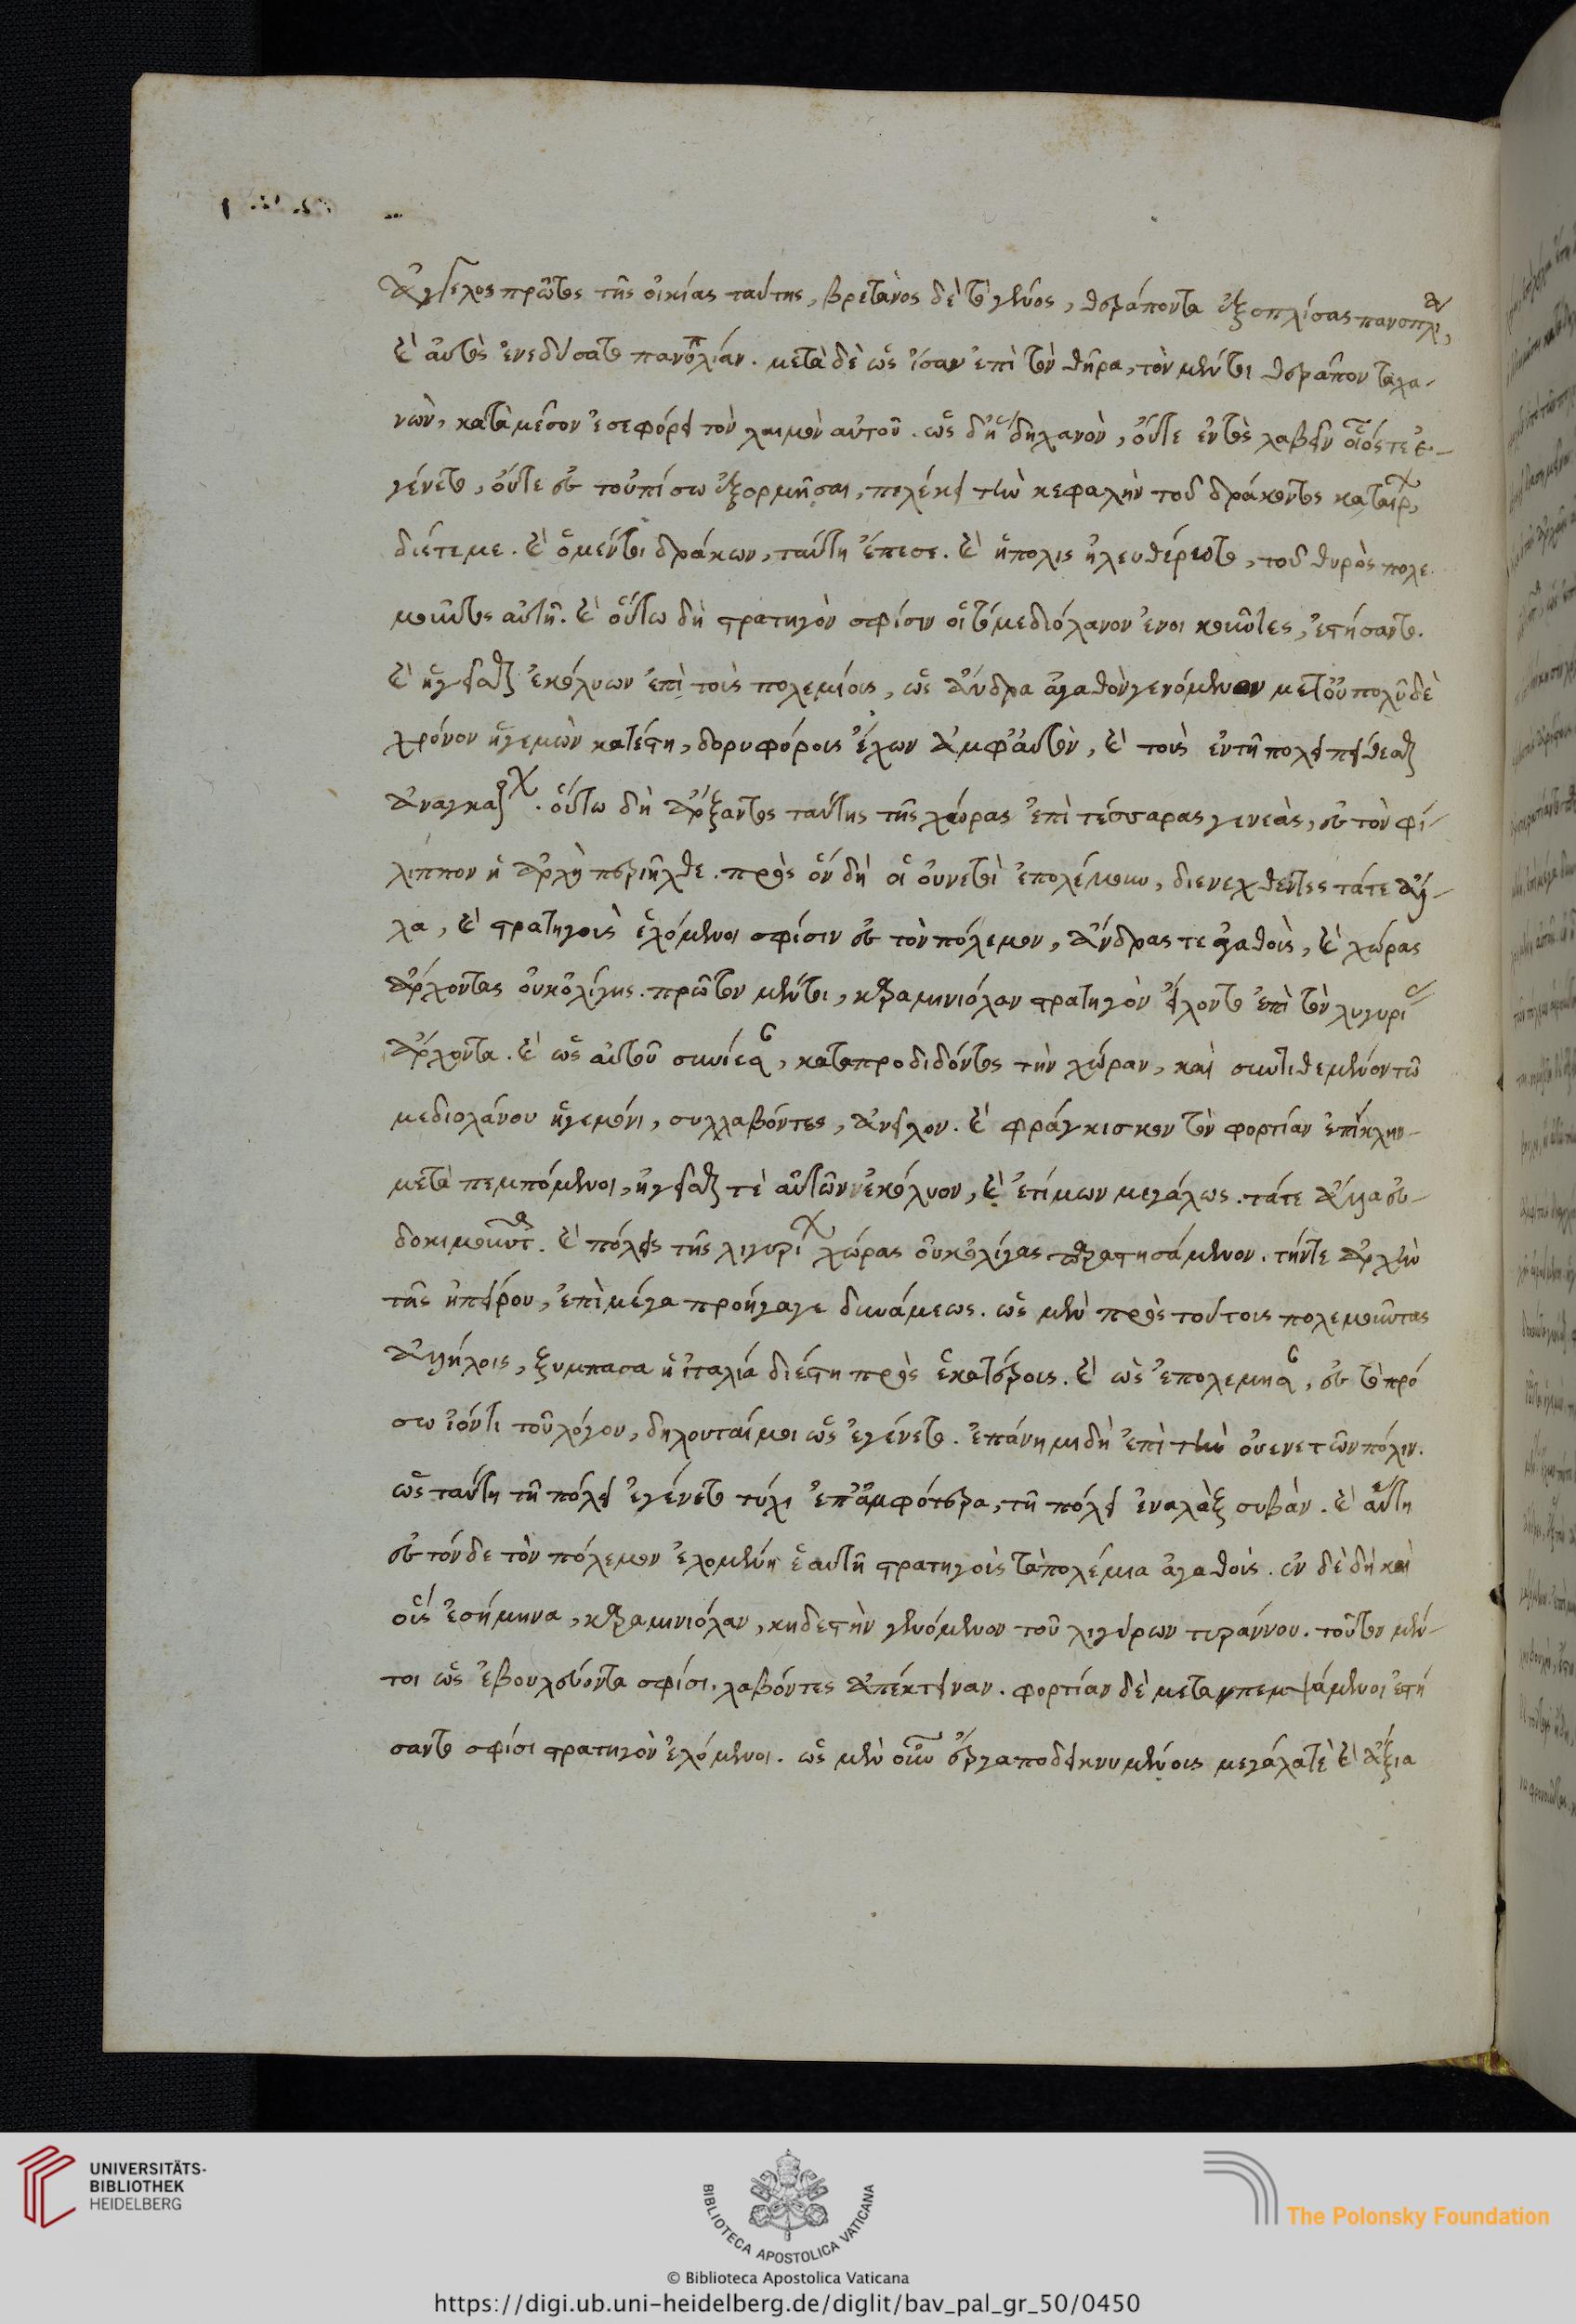 ἄγγελος πρῶτος τῆς οἰκίας ταύτης, βρετανὸς δὲ τὸ γένος, θεράποντα ἐξοπλίσας πανοπλίαν,
καὶ αὐτὸς ἐνεδύσατο πανοπλίαν. μετὰ δὲ ὡς ἴσαν ἐπὶ τὸν θῆρα, τὸν μέντοι θεράποντα χα-
νὼν, κατὰ μέσον ἐσεφόρει τὸν λαιμὸν αὐτοῦ. ὡς δὴ χανὸν, οὔτε ἐντὸς λαβεῖν οἷός τε ἐ-
γένετο, οὔτε ἐς τοὐπίσω ἐξορμῆσαι, πελέκει τὴν κεφαλὴν τοῦ δράκοντος
διέτεμε. καὶ ὁ μέντοι δράκων, ταύτῃ ἔπεσε. καὶ ἡ πόλις ἠλευθέρωτο, τοῦ θηρὸς πολε
μοῦντος αὐτῇ. καὶ οὕτω δὴ στρατηγὸν σφίσιν οἱ τὸ μεδιόλανον ἐνοικοῦντες, ἐστήσαντο.
καὶ ἡγεῖσθαι ἐκέλυων ἐπὶ τοῖς πολεμίοις, ὡς ἄνδρα ἀγαθὸν γενόμενον μετ' οὐ πολὺ δὲ
χρόνον ἡγεμὼν κατέστη, δορυφόροις ἔχων ἀμφ' αὐτὸν, καὶ τοὺς ἐν τῇ πόλει πείθεσθαι
ἀναγκαζ. οὕτω δὴ ἄρξαντος ταύτης τῆς χώρας ἐπὶ τέσσαρας γενεὰς, ἐς τὸν φί-
λιππον ἡ ἀρχὴ περιῆλθε. πρὸς ὃν δὴ οἱ οὐνετοὶ ἐπολέμουν, διενεχθέντες τά τε ἄλ-
λα, καὶ στρατηγοὺς ἑλόμενοι σφίσιν ἐς τὸν πόλεμον, ἄνδρας τε ἀγαθοὺς, καὶ χώρας
ἄρχοντας οὐκ ὀλίγης. πρῶτον μέντοι, καρμινιόλαν στρατηγὸν εἵλοντο ἐπὶ τὸν λυγυρί
ἄρχοντα. καὶ ὡς αὐτοῦ συνίεσαν, καταπροδιδόντος τὴν χώραν, καὶ συντιθεμένον τῶ
μεδιολάνου ἡγεμόνι, συλλαβόντες, ἀνεῖλον. καὶ φράγκισκον τὸν φορτίαν ἐπίκλην
μεταπεμπόμενοι, ἡγεῖσθαι τὲ αὐτῶν ἐκέλυον, καὶ ἐτίμων μεγάλως. τά τε ἄλλα εὐ-
δοκιμοῦντα. καὶ πόλεις τῆς λιγυρι χώρας οὐκ ὀλίγας παραστησάμενον. τήν τε ἀρχὴν
τῆς ἠπείρου, ἐπὶ μέγα προήγαγε δυνάμεως. ὡς μὲν πρὸς τούτοις πολεμοῦντας
ἀλλήλοις, ξύμπασα ἡ ἰταλία διέστη πρὸς ἑκατέροις. καὶ ὡς ἐπολεμησαν, ἐς τὸ πρό
σω ἰόντι τοῦ λόγου, δηλοῦταί μοι ὡς ἐγένετο. ἐπάνημι δὴ ἐπὶ τὴν οὐενετῶν πόλιν.
ὡς ταύτῃ τῇ πόλει ἐγένετο τύχι ἐπ' ἀμφότερα, τῇ πόλει ἐναλὰξ συβὰν. καὶ αὕτη
ἐς τόνδε τὸν πόλεμον ἑλομένη ἑαυτῇ στρατηγοὺς τὰ πολέμια ἀγαθοὺς. ἐν δὲ δὴ καὶ
οἷς ἐσήμηνα, καρμινιόλαν, κηδεστὴν γενόμενον τοῦ λιγύρων τυράννου. τοῦτον μέν-
τοι ὡς ἐβουλεύοντα σφίσι, λαβόντες ἀπέκτειναν. φορτίαν δὲ μεταπεμψάμενοι ἐστή
σαντο σφίσι στρατηγὸν ἑλόμενοι. ὡς μὲν οὖν ἔργα ποδεικνυμένοις μεγάλα τὲ καὶ ἄξια
UNIVERSITÄTS-
BIBLIOTHEK
HEIDELBERG
BIBLIOTECA APOSTOLICA VATICANA
The Polonsky Foundation
© Biblioteca Apostolica Vaticana
https://digi.ub.uni-heidelberg.de/diglit/bav_pal_gr_50/0450